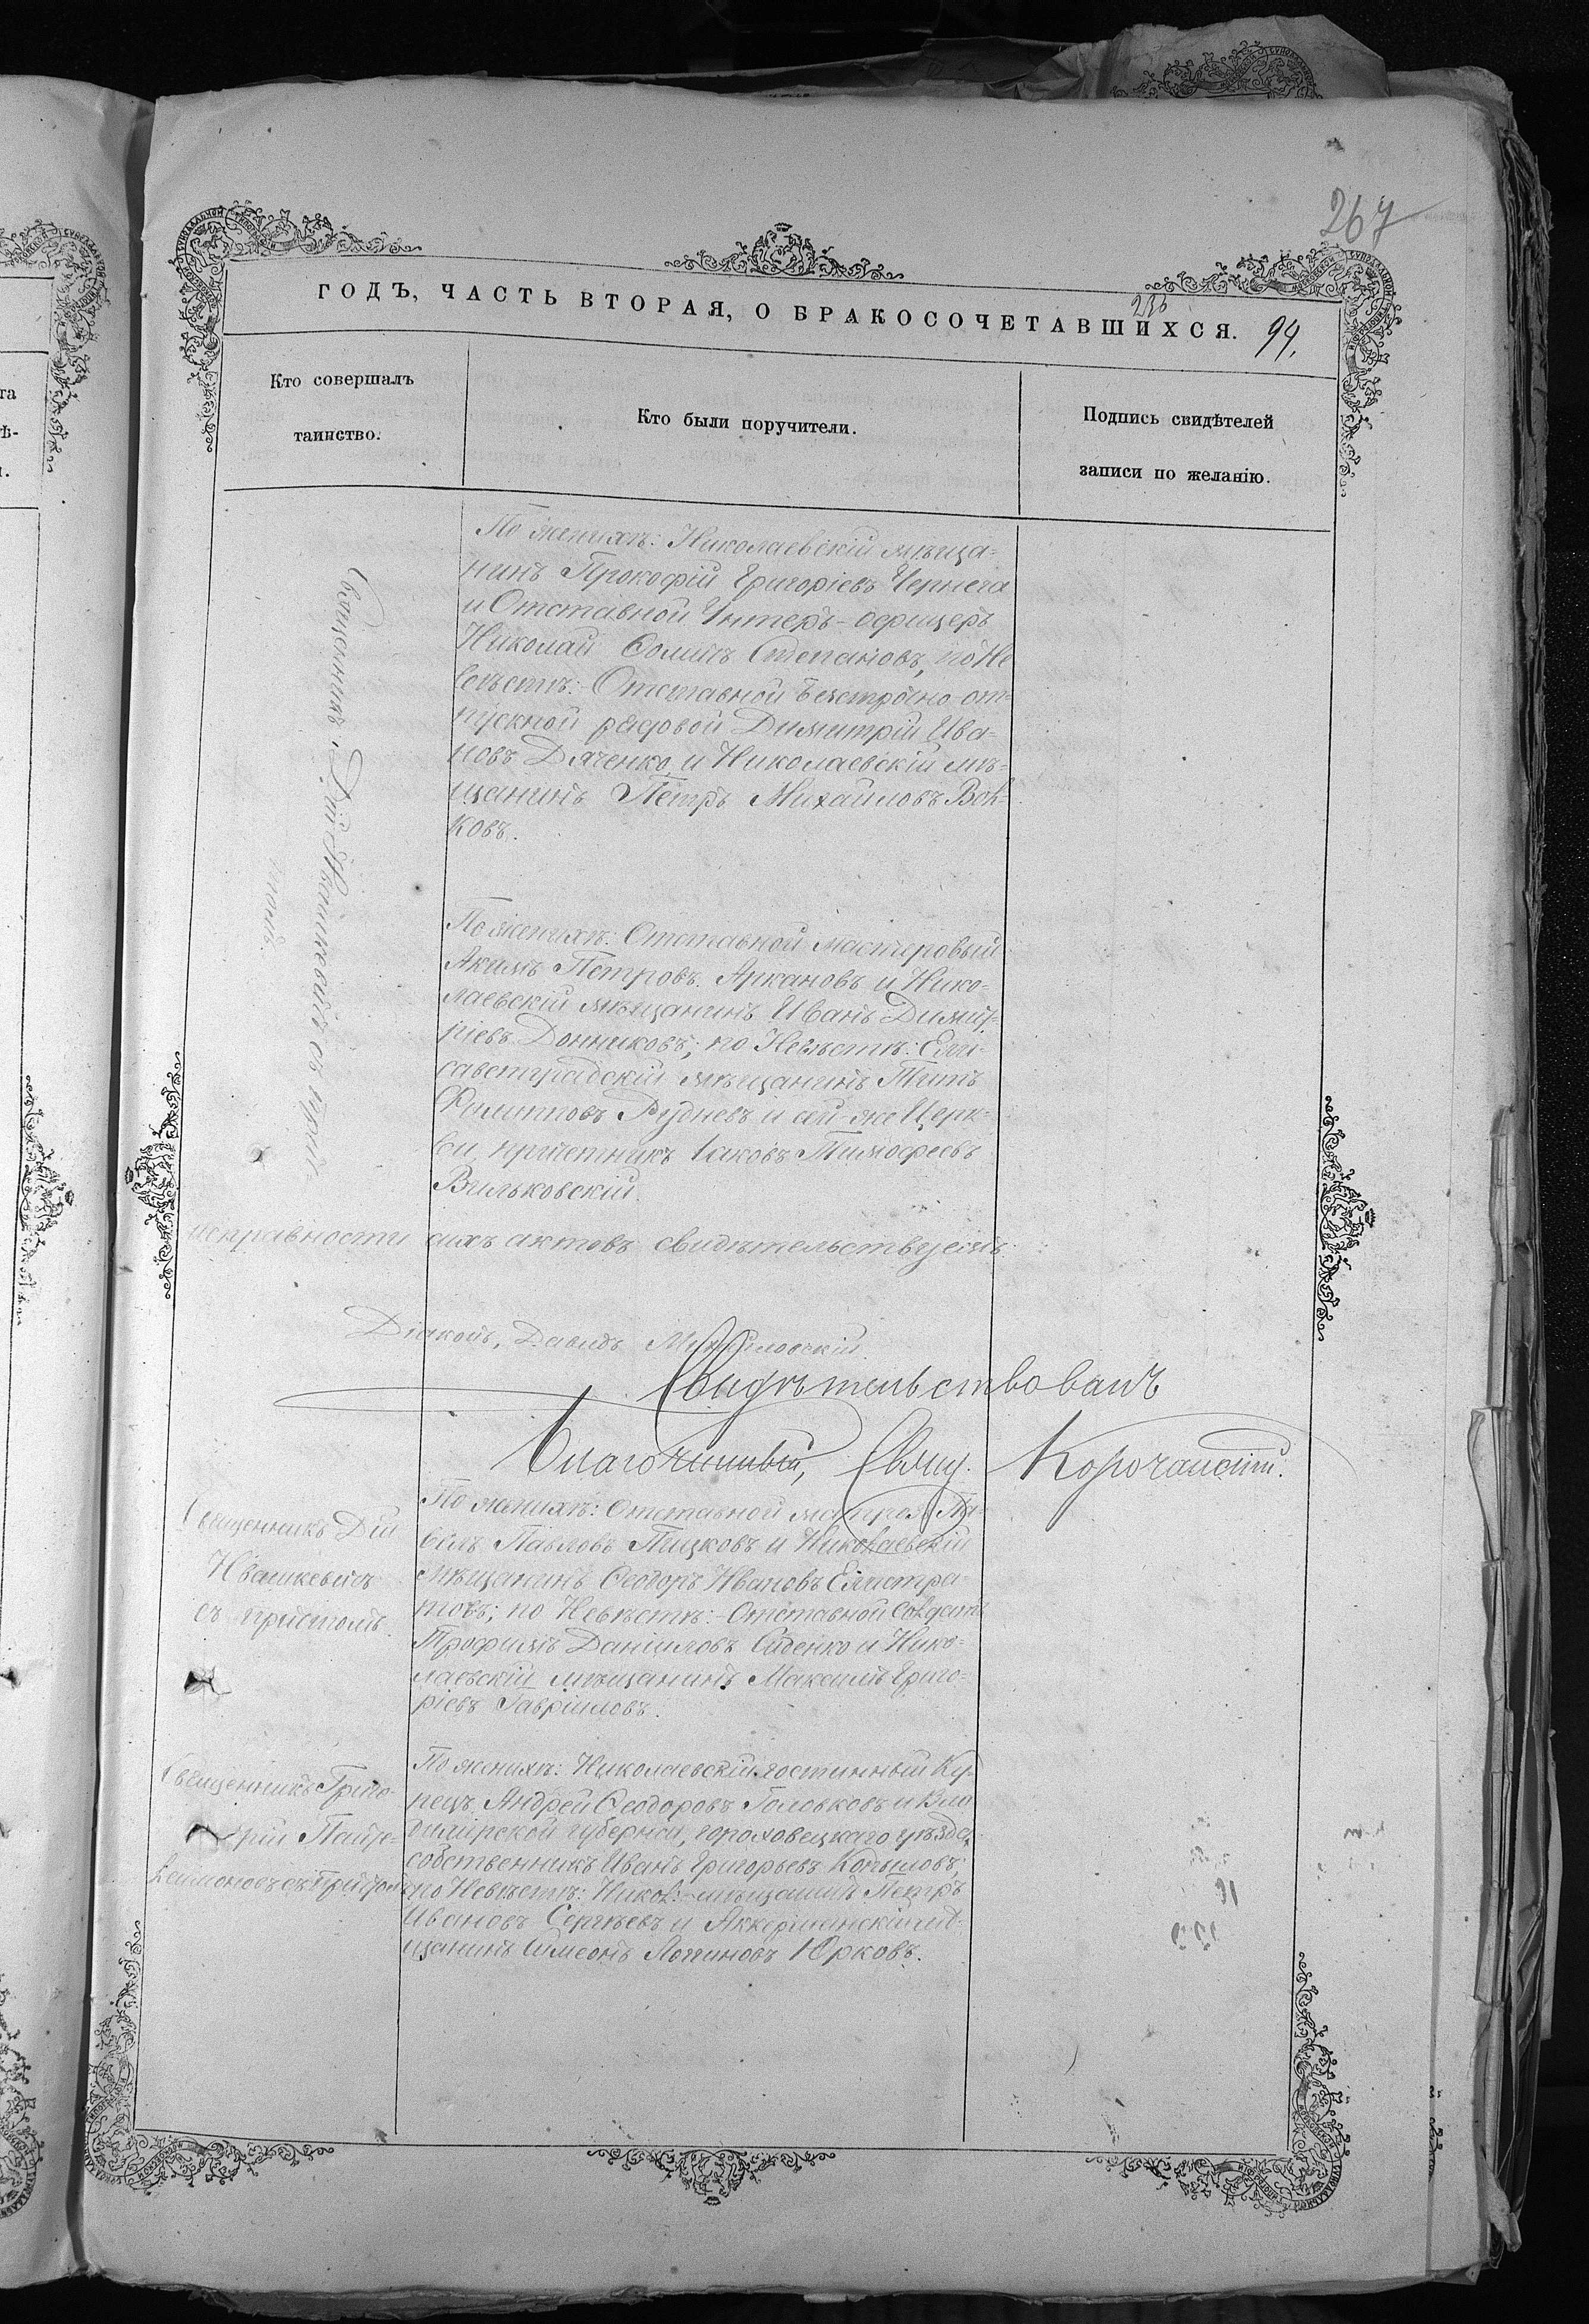 267
ГОДЪ, ЧАСТЬ ВТОРАЯ, О БРАКОСОЧЕТАВШИХСЯ. 94.
Кто совершалъ
таинство.
Кто были поручители.
Подпись свидѣтелей
записи по желанію.
Священникъ Дій Ивашкевичъ съ прич-
томъ.
По женихѣ: Николаевскій мѣща-
нинъ Прокофій Григоріевъ Чернега
и Отставной Унтеръ-офицеръ
Николай Фоминъ Степановъ, по Не
вѣстѣ: Отставной безсрочно-от-
пускной рядовой Димитрій Ива-
новъ Дяченко и Николаевскій мѣ-
щанинъ Петръ Михайловъ Вол-
ковъ.
По женихѣ: Отставной мастеровый
Акимъ Петровъ Аркановъ и Нико-
лаевскій мѣщанинъ Иванъ Димит-
ріевъ Донниковъ; по Невѣстѣ: Ели-
саветградскій мѣщанинъ Титъ
Филиповъ Рудневъ и сей-же Церк-
ви причетникъ Іаковъ Тимофеевъ
Вильковскій.
исправности сихъ актовъ свидѣтельствуемъ:
Діаконъ, Давидъ
Свидѣтельствовалъ
Благочинный, Свящ. Корочанскій.
Священникъ Дій
Ивашкевичъ
съ причтомъ.
По женихѣ: Отставной матрозъ Па-
велъ Павловъ Птицковъ и Николаевскій
мѣщанинъ Феодоръ Ивановъ Елистра-
товъ; по Невѣстѣ:-Отставной Солдатъ
Трофимъ Даніиловъ Сиденко и Нико-
лаевскій мѣщанинъ Максимъ Григо-
ріевъ Гавріиловъ.
Священникъ Григо-
рій Панте-
леймоновъ съ Причтомъ
По женихѣ: Николаевскій гостинный Ку-
пецъ Андрей Феодоровъ Головковъ и Вла
димірской губерніи, гороховецкаго уѣзда,
собственникъ Иванъ Григорьевъ Копыловъ;
по Невѣстѣ: Никол:-мѣщанинъ Петръ
Ивановъ Сергѣевъ и Аккерманскій мѣ-
щанинъ Симеонъ Логиновъ Юрковъ.